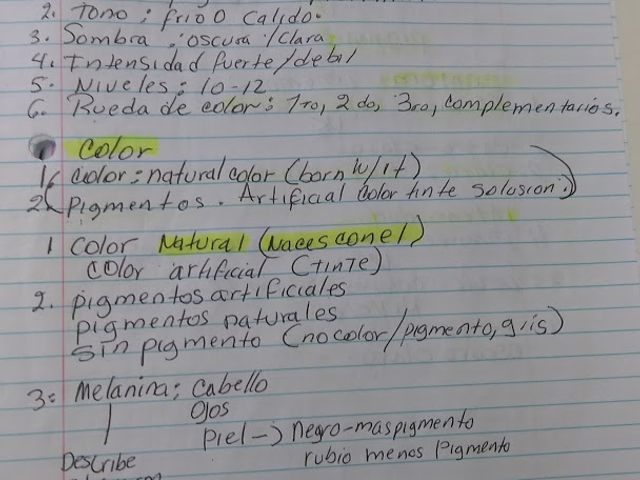 2. Tono: frio o calido.
3. Sombra: oscura/clara
4. Intensidad fuerte/debil
5. Niveles: 10-12
6. Rueda de color: 1ro, 2do, 3ro, complementarios.
color
1 color: natural color (born w/it)
2 pigmentos. Artificial color tinte solusion.
1 color Natural (Naces con el)
color artificial (tinte)
2. pigmentos artificiales
pigmentos naturales
sin pigmento (no color/pigmento, gris)
3: Melanina; Cabello
Ojos
piel -> Negro-mas pigmento
rubio menos Pigmento
Describe